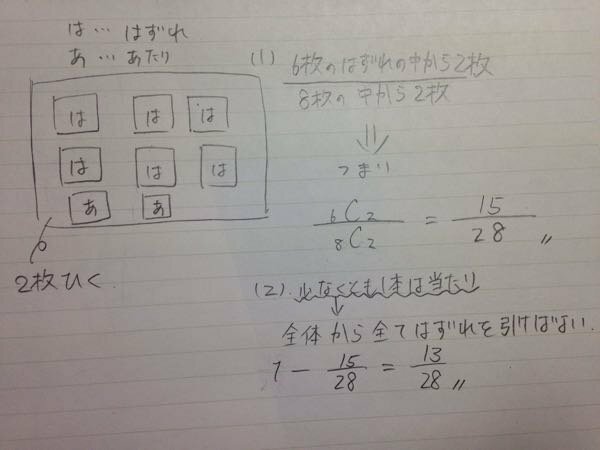 は… はずれ
あ… あたり
は は は
は は は
あ あ
2枚ひく
(1) 6枚のはずれの中から2枚
8枚の中から2枚
つまり
6C2 / 8C2 = 15 / 28 〃
(2). 少なくとも1本は当たり
全体から全てはずれを引けばよい.
1 - 15 / 28 = 13 / 28 〃